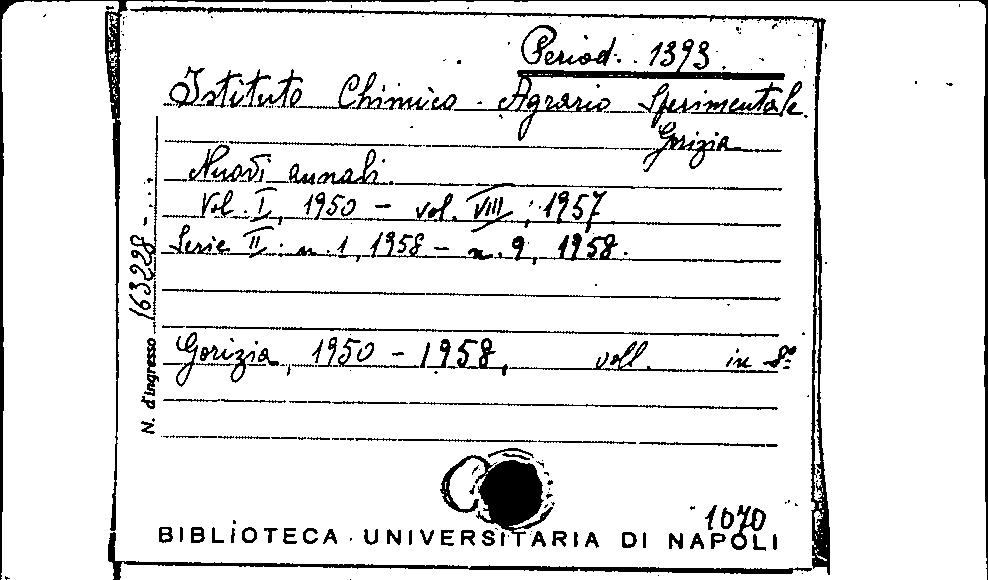 Period. 1393
Istituto Chimico - Agrario Sperimentale.
Gorizia
Nuovi annali.
Vol. I, 1950 - vol. VIII, 1957
Serie II: n. 1, 1958 - n. 9, 1958.
N. d'ingresso 163228 - ...
Gorizia, 1950 - 1958, voll. in 8°
1070
BIBLIOTECA UNIVERSITARIA DI NAPOLI